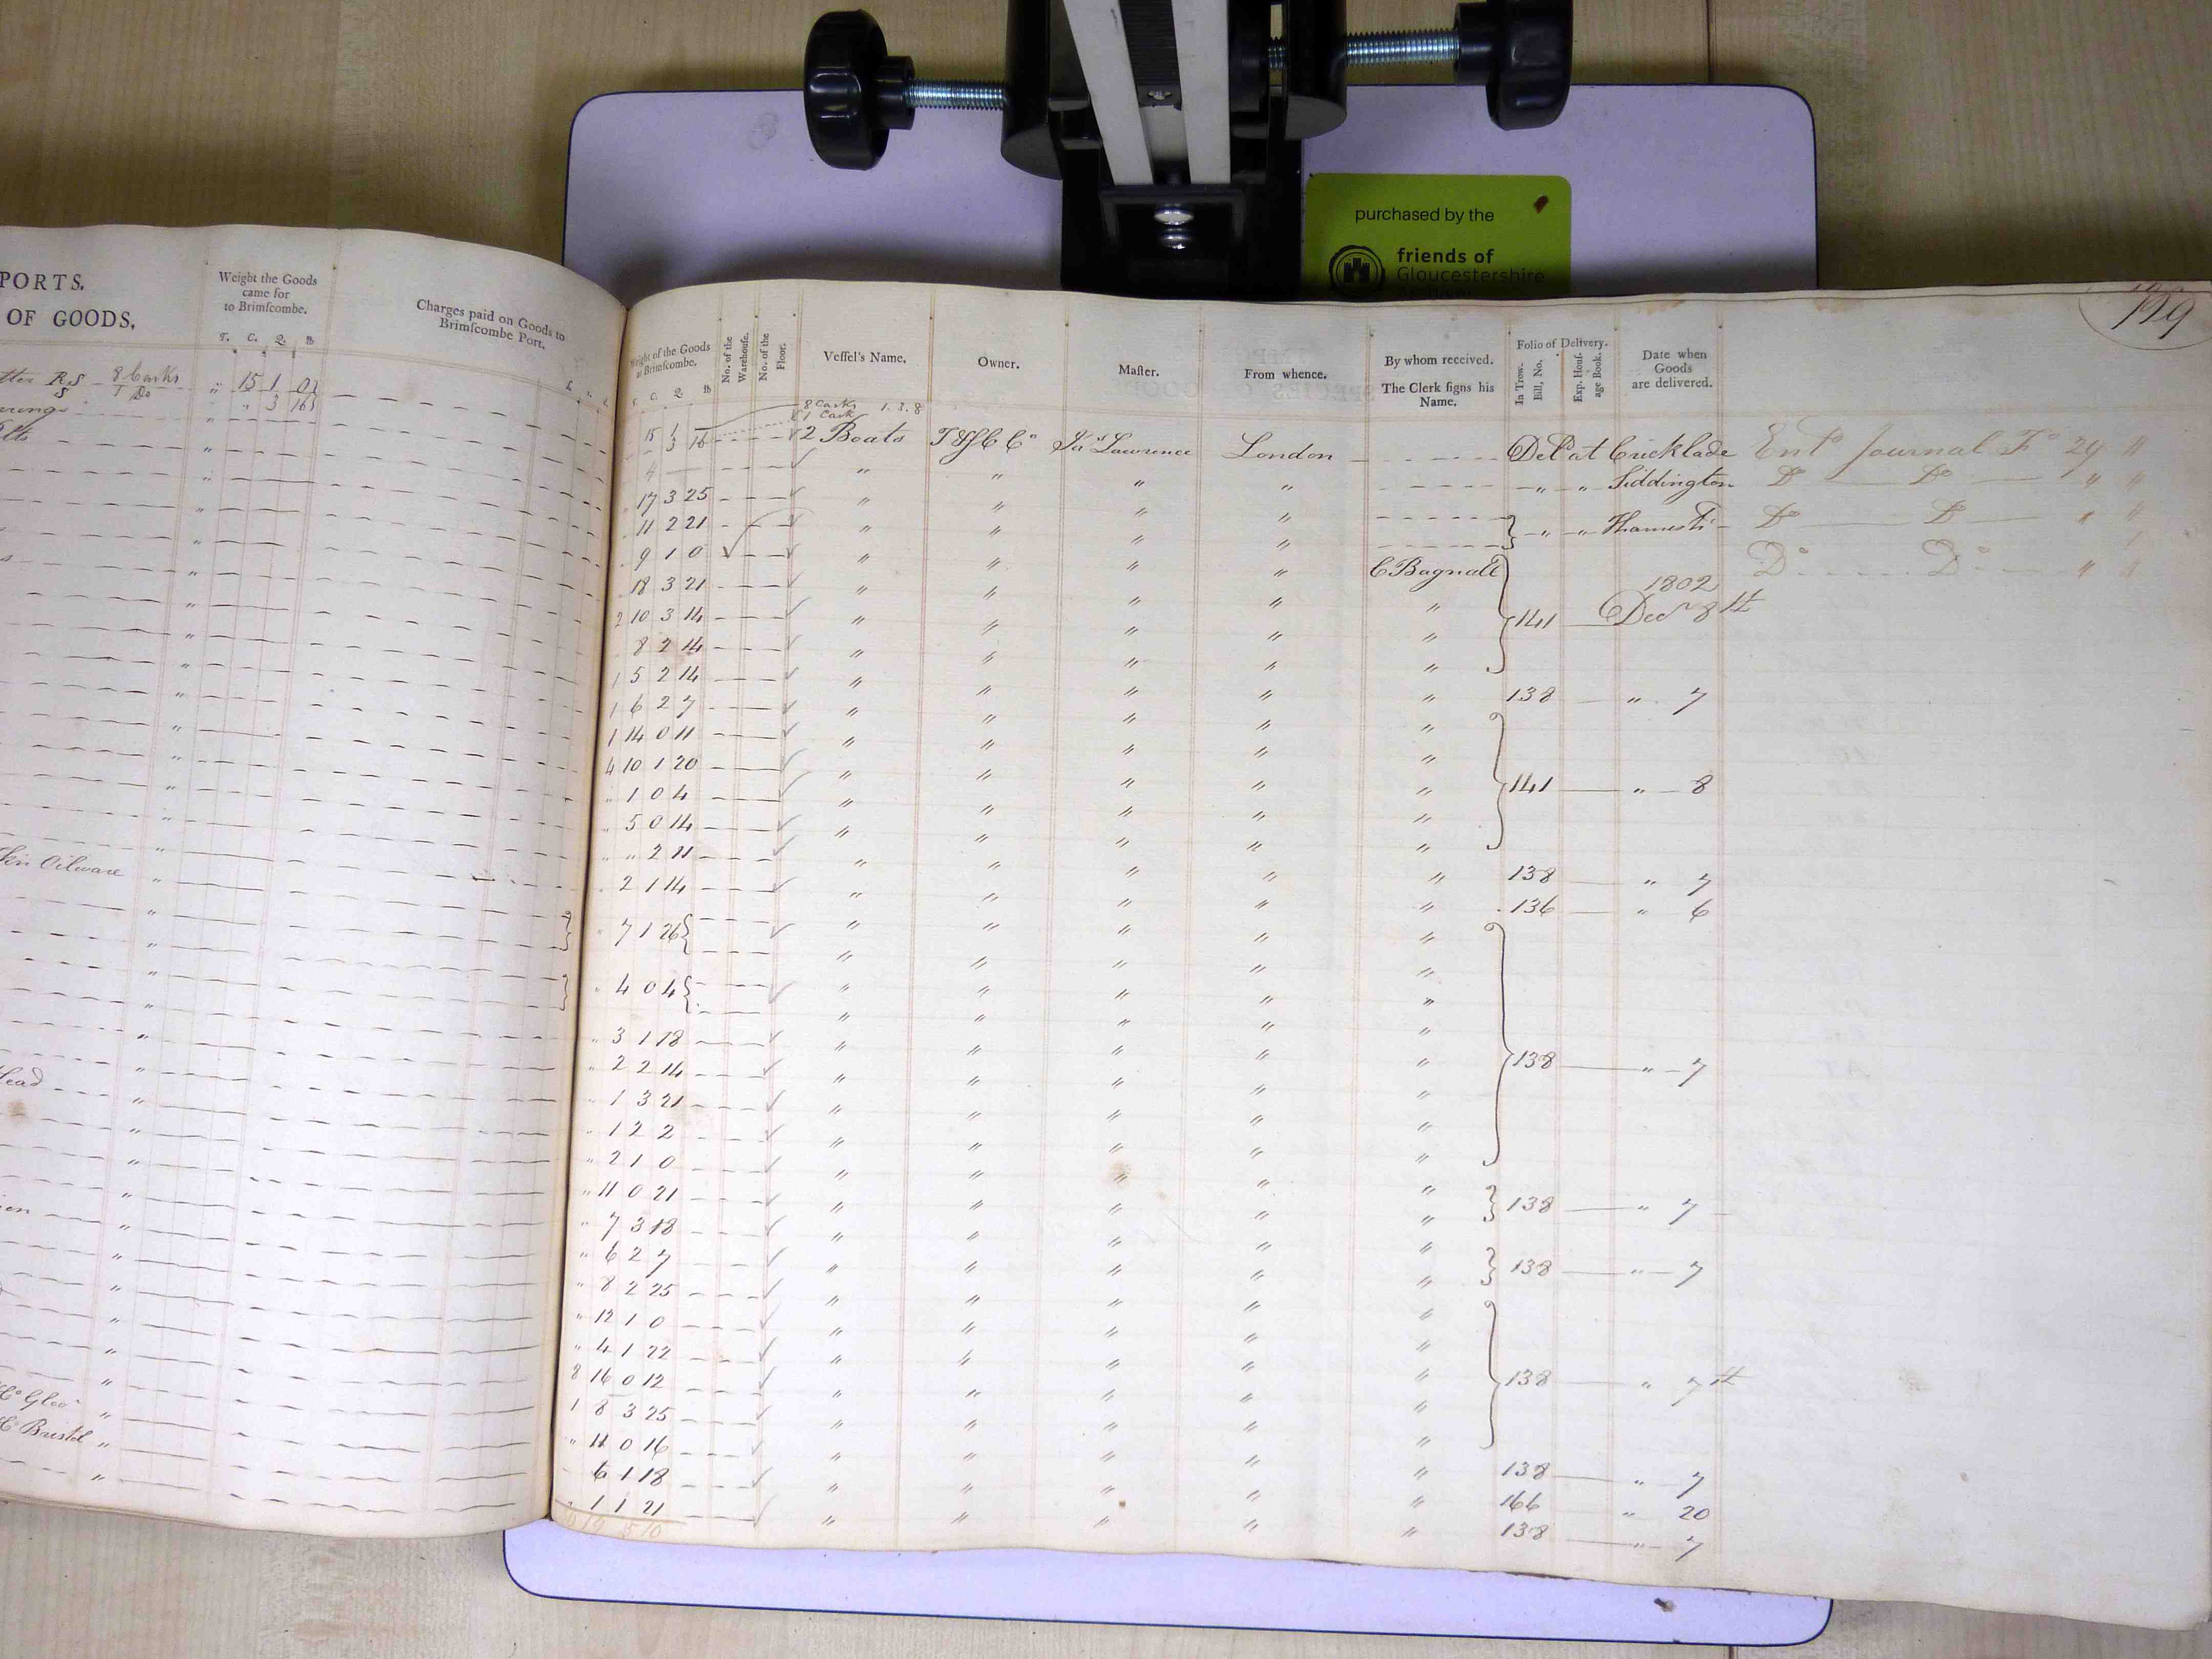 purchased by the
friends of
Gloucestershire
PORTS.
OF GOODS.
Weight the Goods
came for
to Brimſcombe.
T. C. Q. lb
Charges paid on Goods to
Brimſcombe Port.
8 Casks
" 15 1 0
Kin Oilware
Lead
Co Glos
Co Bristol
129
Weight of the Goods
at Brimſcombe.
T. C. Q. lb
No. of the
Warehouſe.
No. of the
Floor.
Veſſel's Name.
Owner.
Maſter.
From whence.
By whom received.
The Clerk ſigns his
Name.
Folio of Delivery.
In Trow.
Bill, No.
Exp. Houſ-
age Book.
Date when
Goods
are delivered.
8 Casks 1.3.8
1 Cask
15 1
3 16 2 Boats T&S C Co Jas Lawrence London Deld at Cricklade Entd Journal Fo 29 "
4 " " " " " " Siddington Do Do " "
17 3 25 " " " " " " Thames Hd Do Do " "
11 2 21 " " " "
9 1 0 " " " " C Bagnall Do Do " "
18 3 21 " " " " " 1802
2 10 3 14 " " " " " 141 Decr 8th
8 2 14 " " " " "
1 5 2 14 " " " " " 138 " 7
1 6 2 7 " " " " "
1 14 0 11 " " " " "
4 10 1 20 " " " " " 141 " 8
" 1 0 4 " " " " "
" 5 0 14 " " " " "
" " 2 11 " " " " " 138 " 7
2 1 14 " " " " " 136 " 6
" 7 1 26 " " " " "
" 4 0 4 " " " " "
" 3 1 18 " " " " "
" 2 2 14 " " " " " 138 " 7
" 1 3 21 " " " " "
" 1 2 2 " " " " "
" 2 1 0 " " " " "
" 11 0 21 " " " " " 138 " 7
" 7 3 18 " " " " "
" 6 2 7 " " " " " 138 " 7
" 8 2 25 " " " " "
" 12 1 0 " " " " "
" 4 1 22 " " " " "
8 16 0 12 " " " " " 138 " 7th
1 8 3 25 " " " " "
" 11 0 16 " " " " " 138 " 7
6 1 18 " " " " " 166 " 20
" 1 1 21 " " " " " 138 " 7